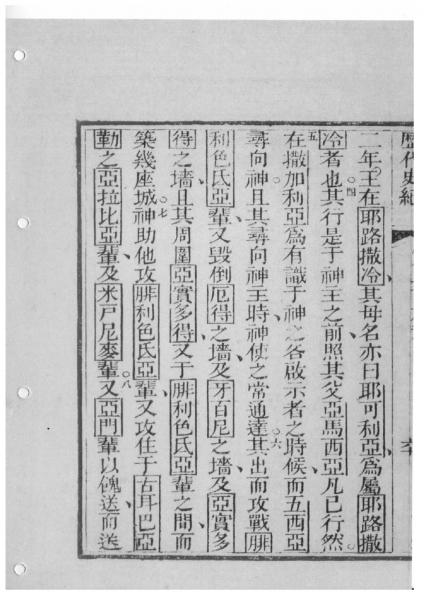 歷代史紀
二年王在耶路撒冷其母名亦曰耶可利亞爲屬耶路撒
冷者也四其行是于神主之前照其父亞馬西亞凡已行然
五在撒加利亞爲有識于神之各啟示者之時候而五西亞
尋向神且其尋向神主時神使之常通達六其出而攻戰腓
利色氏亞輩又毀倒厄得之墻及牙百尼之墻及亞實多
得之墻且其周圍亞實多得又于腓利色氏亞輩之間而
築幾座城七神助他攻腓利色氏亞輩又攻住于古耳巴亞
勒之亞拉比亞輩及米戶尼麥輩八又亞門輩以餽送而送